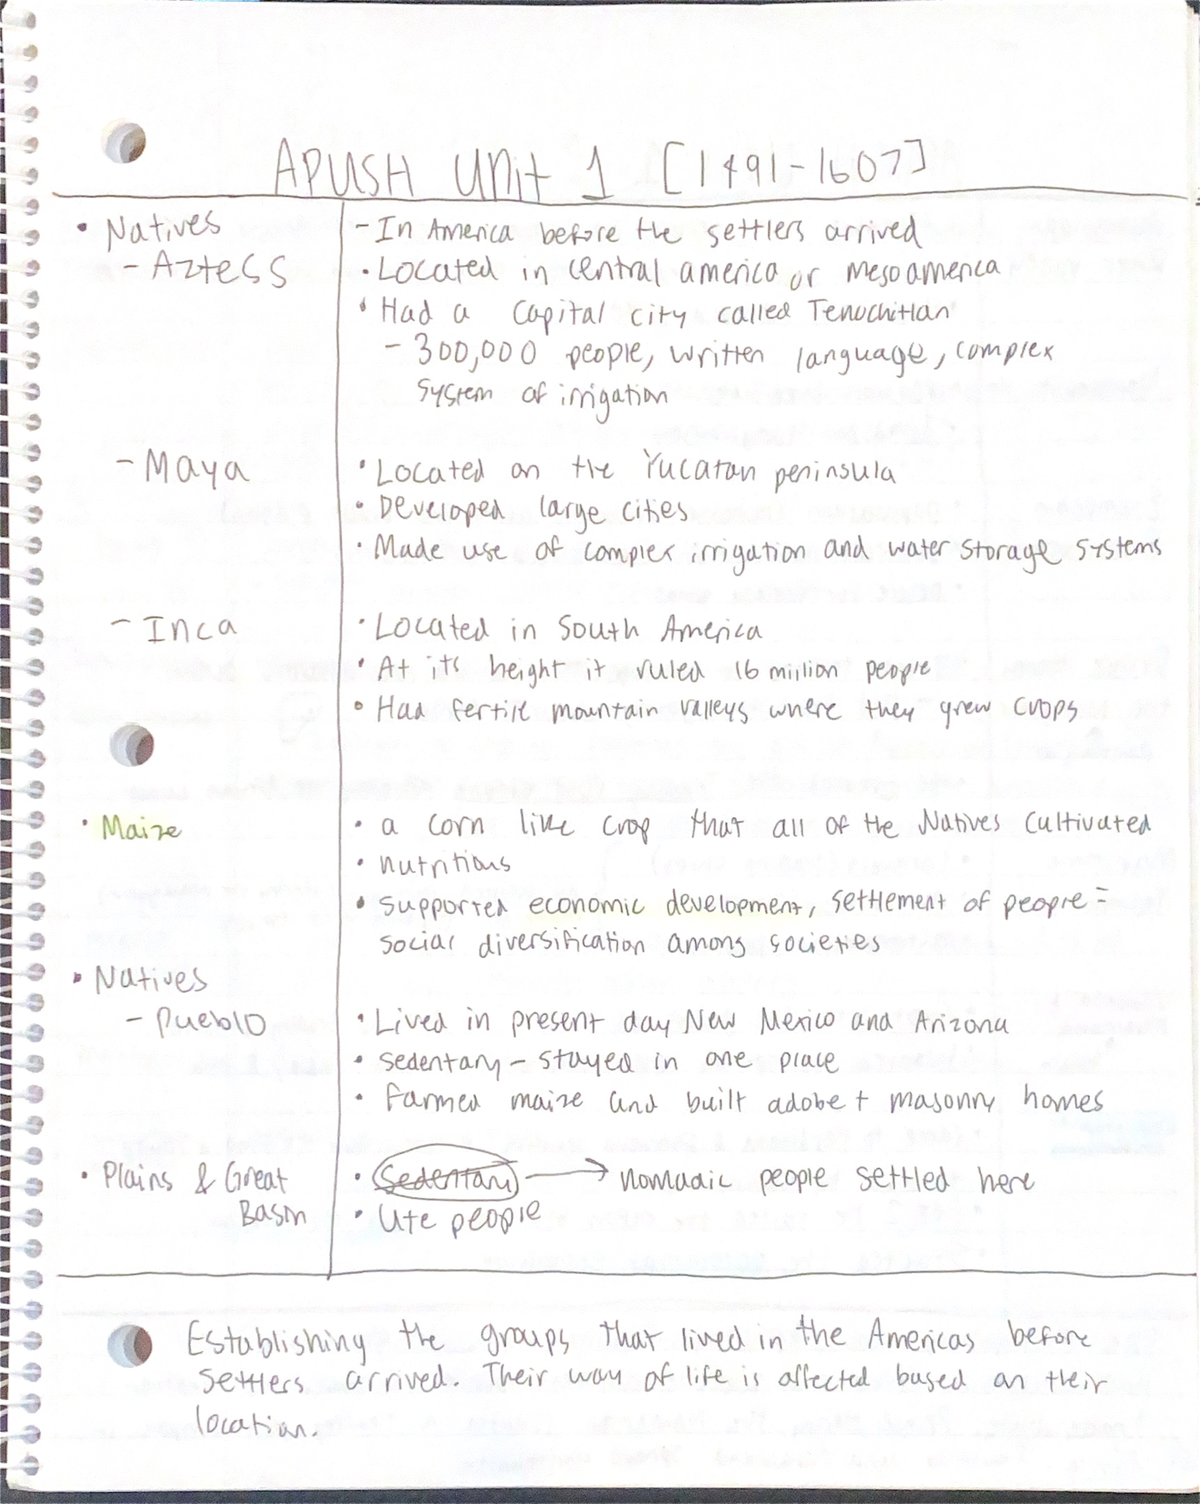 APUSH Unit 1 [1491-1607]
• Natives
- Aztess
- In America before the settlers arrived
• Located in central america or mesoamerica
• Had a capital city called Tenochitlan
- 300,000 people, written language, complex
system of irrigation
- Maya
• Located on the Yucatan peninsula
• Developed large cities
• Made use of complex irrigation and water storage systems
- Inca
• Located in South America
• At its height it ruled 16 million people
• Had fertile mountain valleys where they grew crops
• Maize
• a corn like crop that all of the Natives cultivated
• nutritious
• supported economic development, settlement of people =
social diversification among societies
• Natives
- Pueblo
• Lived in present day New Mexico and Arizona
• sedentary - stayed in one place
• farmed maize and built adobe + masonry homes
• Plains & Great
Basin
• Sedentary → nomadic people settled here
• Ute people
Establishing the groups that lived in the Americas before
settlers arrived. Their way of life is affected based on their
location.